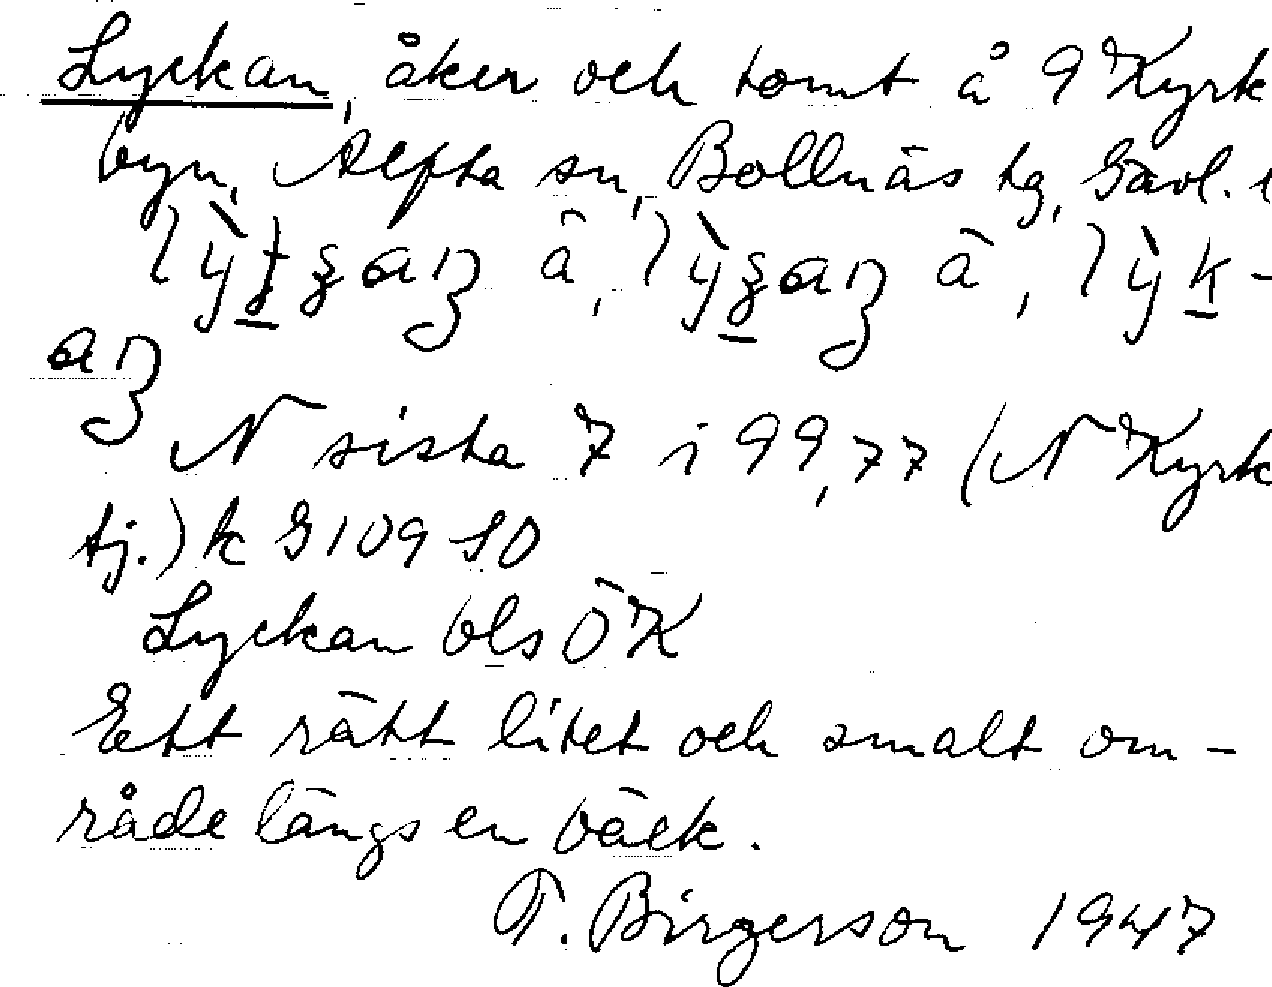 Lyckan, åker och tomt å 9 Kyrk
byn, Alfta sn, Bollnäs tg, Gävl. l
å, å,
N sista 7 i 99,77 (N Kyrk
tj.) k G 109 SO
Lyckan bls ÖK
Ett rätt litet och smalt om-
råde längs en bäck.
T. Birgerson 1947